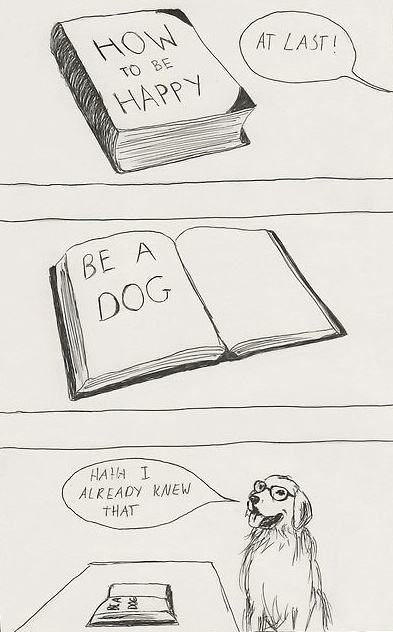 HOW
TO BE
HAPPY
AT LAST!
BE A
DOG
HAHA I
ALREADY KNEW
THAT
BE A
DOG